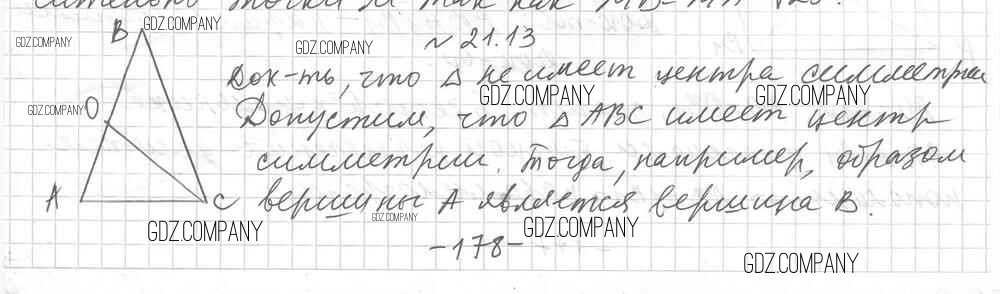 сительно точки M так как
GDZ.COMPANY
GDZ.COMPANY
B
GDZ.COMPANY
№ 21.13
Док-ть, что △ не имеет центра симметрии
GDZ.COMPANY
GDZ.COMPANY
GDZ.COMPANY
O
Допустим, что △ ABC имеет центр
симметрии. Тогда, например, образом
A
C
вершины A является вершина B.
GDZ.COMPANY
GDZ.COMPANY
GDZ.COMPANY
-178-
GDZ.COMPANY